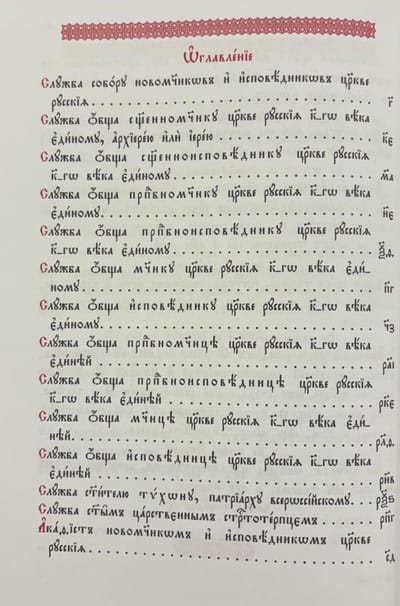 Ѡ҆главле́нїе
Слꙋ́жба собо́рꙋ новомч҃никѡвъ и҆ и҆сповѣ́дникѡвъ цр҃кве
рꙋ́сскїѧ. г҃
Слꙋ́жба ѻ҆́бща сщ҃енномч҃никꙋ цр҃кве рꙋ́сскїѧ к҃-гѡ вѣ́ка
є҆ди́номꙋ, а҆рхїере́ю и҆лѝ і҆ере́ю. к҃є
Слꙋ́жба ѻ҆́бща сщ҃енноисповѣ́дникꙋ цр҃кве рꙋ́сскїѧ
к҃-гѡ вѣ́ка є҆ди́номꙋ. м҃а
Слꙋ́жба ѻ҆́бща прпⷣбномч҃никꙋ цр҃кве рꙋ́сскїѧ к҃-гѡ вѣ́ка
є҆ди́номꙋ. н҃є
Слꙋ́жба ѻ҆́бща прпⷣбноисповѣ́дникꙋ цр҃кве рꙋ́сскїѧ
к҃-гѡ вѣ́ка є҆ди́номꙋ. ѯ҃ѳ
Слꙋ́жба ѻ҆́бща мч҃никꙋ цр҃кве рꙋ́сскїѧ к҃-гѡ вѣ́ка є҆ди́-
номꙋ. п҃г
Слꙋ́жба ѻ҆́бща и҆сповѣ́дникꙋ цр҃кве рꙋ́сскїѧ к҃-гѡ вѣ́ка
є҆ди́номꙋ. ч҃з
Слꙋ́жба ѻ҆́бща прпⷣбномч҃ницѣ цр҃кве рꙋ́сскїѧ к҃-гѡ вѣ́ка
є҆ди́нѣй. ра҃і
Слꙋ́жба ѻ҆́бща прпⷣбноисповѣ́дницѣ цр҃кве рꙋ́сскїѧ
к҃-гѡ вѣ́ка є҆ди́нѣй. рк҃є
Слꙋ́жба ѻ҆́бща мч҃ницѣ цр҃кве рꙋ́сскїѧ к҃-гѡ вѣ́ка є҆ди́-
нѣй. рл҃ѳ
Слꙋ́жба ѻ҆́бща и҆сповѣ́дницѣ цр҃кве рꙋ́сскїѧ к҃-гѡ вѣ́ка
є҆ди́нѣй. рн҃в
Слꙋ́жба ст҃и́телю тѵ́хѡнꙋ, патрїа́рхꙋ всерѡссі́йскомꙋ. рѯ҃ѕ
Слꙋ́жба ст҃ы̑мъ ца́рствєннымъ стрⷭ҇тоте́рпцємъ. рп҃г
А҆ка́ѳїстъ новомч҃никѡмъ и҆ и҆сповѣ́дникѡмъ цр҃кве
рꙋ́сскїѧ. с҃д